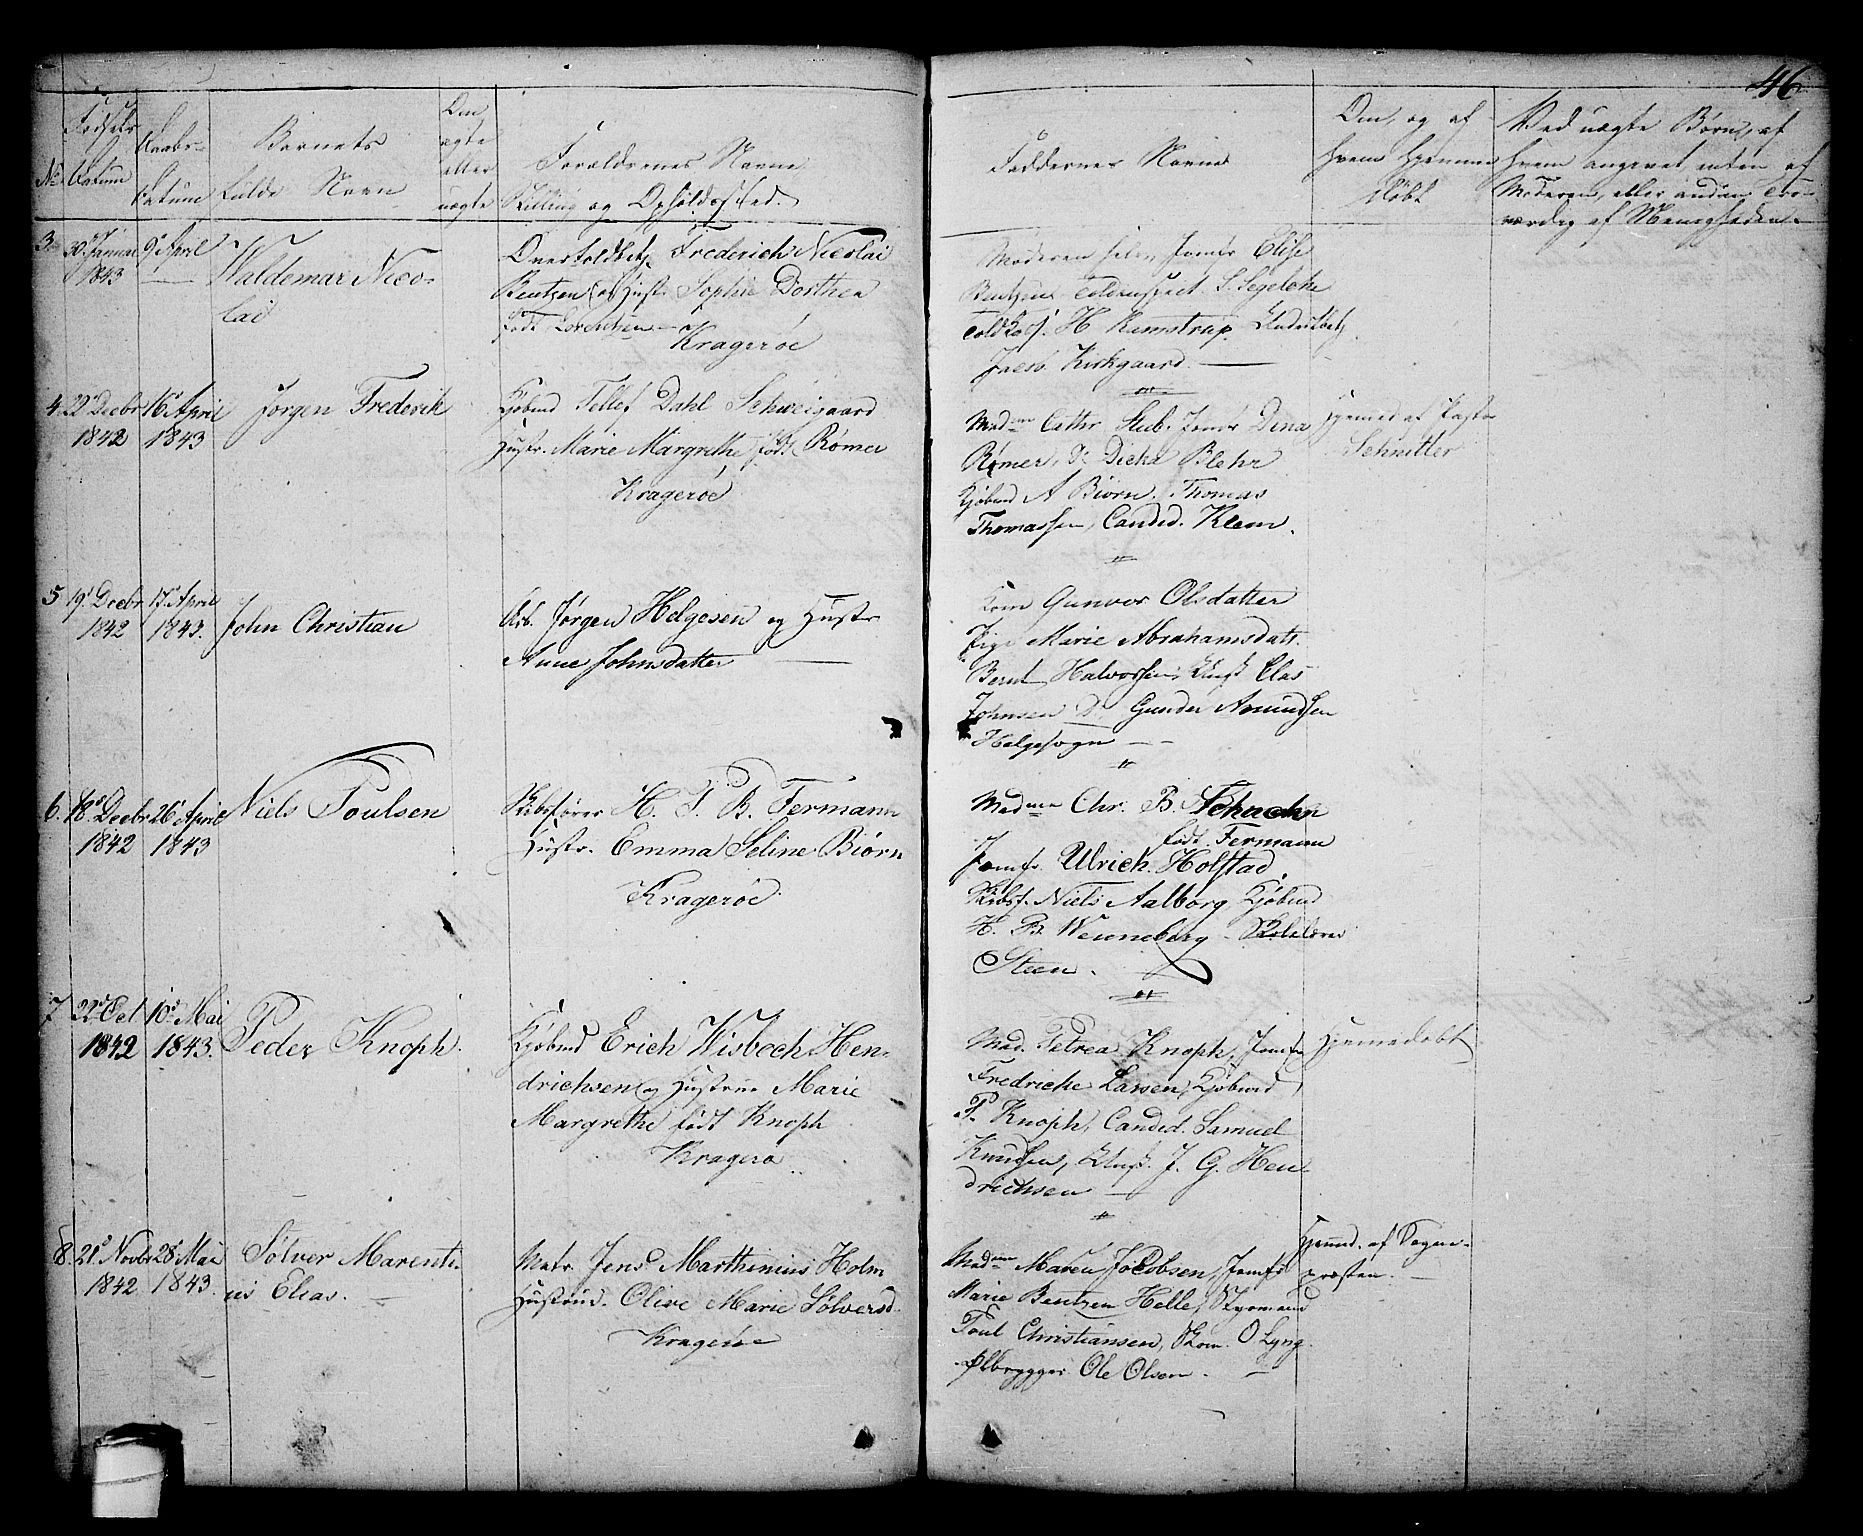 46
No
Fødsels
Datum
Daabs-
Datum
Barnets
fulde Navn
Om
ægte
eller
uægte
Forældrenes Navne
Stilling og Opholdssted.
Faddernes Navne
Om, og af
hvem hjemme
døbt
Ved uægte Børn, af
hvem angivet enten af
Moderen, eller anden tro-
værdig af Menigheden.
3
30 Januar
1843
9 April
Waldemar Nico-
lai
Overtoldbetj Frederich Nicolai
Bentzen og Hustr Sophie Dorthea
født Lorentzen
Kragerøe
Moderen selv, Jomfr Elise
Bentzen S. Segelcke
H Remstrup,
Jacob Kirkgaard
4
22 Decbr
1842
16 April
1843
Jørgen Frederik
Kjøbmd Tellef Dahl Schweigaard
Hustr. Marie Margrethe født Rømer
Kragerøe
Madme Cathr Stub. Jomfr Dina
Rømer, Do Dicka Blehr
Kjøbmd A Biørn. Thomas
Thomassen, Candid. Klem.
Hjemmed af Pastor
Schnitler
5
19 Decbr
1842
17 April
1843.
John Christian
Arb. Jørgen Helgesen og Hustr
Anne Johnsdatter
Kone Gunvor Olsdatter
Pige Marie Abrahamsdatt.
Bernt Halvorssen, Ungk Elas
Johnsen Do Gunder Amundsen
Helgesogn
6.
18 Decbr
1842
26 April
1843
Niels Poulsen
Skibsfører H. P. B. Fermann
Hustr. Emma Seline Biørn
Kragerøe
Madme Chr. B. Schachn
født Fermann
Jomfr. Ulrich. Holstad.
Skibsf. Niels Aalborg, Kjøbmd
H. B. Wenneberg Skolelærer
Steen.
7
22 Oct
1842
10 Mai
1843.
Peder Knoph.
Kjøbmd Erich Wisbech Hen-
drichsen og Hustrue Marie
Margrethe født Knoph
Kragerø
Mad. Petrea Knoph, Jomfr
Fredriche Larsen, Kjøbmd
P. Knoph, Candid. Samuel
Knudsen, Ungk. J. G. Hen-
drichsen
Hjemmedøbt
8.
21 Novbr
1842
28 Mai
1843.
Sølver Marenti-
us Elias.
Matr. Jens Marthinius Holm
Hustrue. Olive Marie Sølversd.
Kragerøe
Madme Maren Jacobsen, Jomfr
Marie Bentzen Helle, Styrmand
Poul Christiansen, Skom. O Lyng
Ølbrygger Ole Olsen.
Hjemd. af Sogne-
præsten.